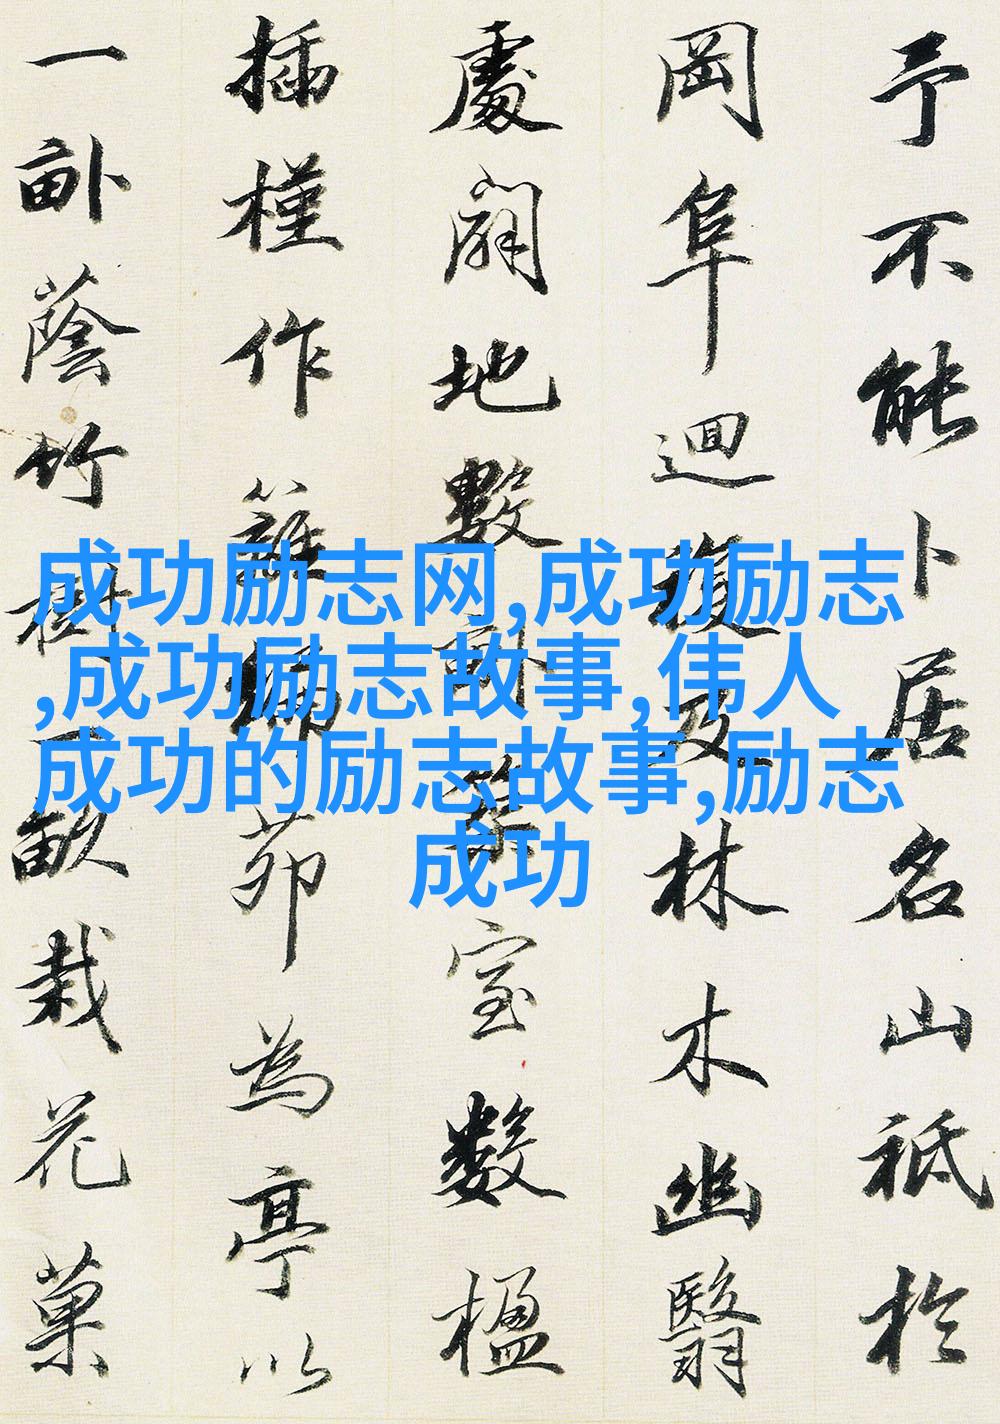 予不能卜居名山祗於
岡阜迴複及林木幽翳
處闢地數畝築室數楹
插槿作籬編茆為亭以
一畝蔭竹樹一畝栽花菓
成功励志网,成功励志
,成功励志故事,伟人
成功的励志故事,励志
成功